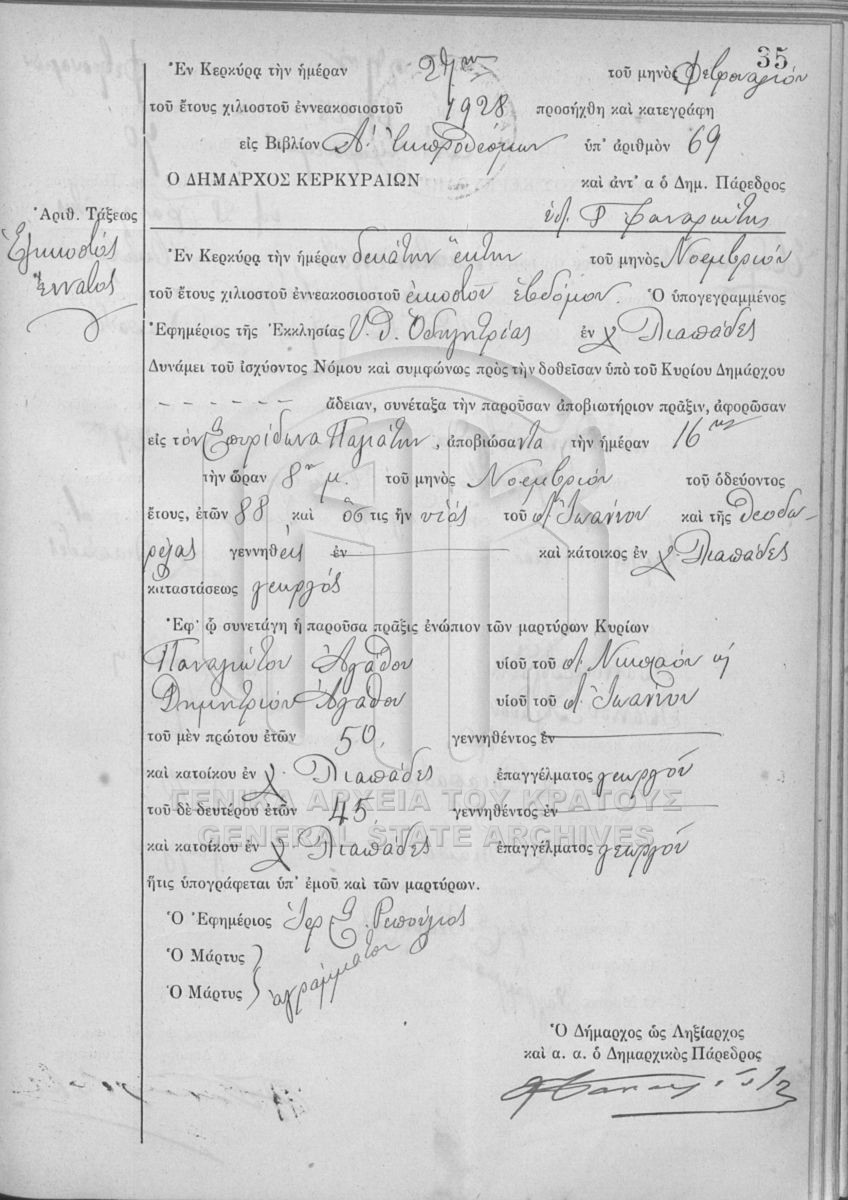 35
Ἐν Κερκύρᾳ τὴν ἡμέραν 27ην τοῦ μηνὸς Φεβρουαρίου
τοῦ ἔτους χιλιοστοῦ ἐννεακοσιοστοῦ 1928 προσήχθη καὶ κατεγράφη
εἰς Βιβλίον Α. Ἐκπροθέσμων ὑπ' ἀριθμὸν 69
Ο ΔΗΜΑΡΧΟΣ ΚΕΡΚΥΡΑΙΩΝ καὶ ἀντ' α ὁ Δημ. Πάρεδρος
Φαναριώτης
Ἀριθ. Τάξεως
Εἰκοστὸς
ἔννατος
Ἐν Κερκύρᾳ τὴν ἡμέραν δεκάτην ἕκτην τοῦ μηνὸς Νοεμβρίου
τοῦ ἔτους χιλιοστοῦ ἐννεακοσιοστοῦ εἰκοστοῦ ἑβδόμου. Ὁ ὑπογεγραμμένος
Ἐφημέριος τῆς Ἐκκλησίας Υ. Θ. Ὁδηγητρίας ἐν χ Λιαπάδες
Δυνάμει τοῦ ἰσχύοντος Νόμου καὶ συμφώνως πρὸς τὴν δοθεῖσαν ὑπὸ τοῦ Κυρίου Δημάρχου
ἄδειαν, συνέταξα τὴν παροῦσαν ἀποβιωτήριον πρᾶξιν, ἀφορῶσαν
εἰς τὸν Σπυρίδωνα Παγιάτην, ἀποβιώσαντα τὴν ἡμέραν 16ην
τὴν ὥραν 8ην μ. τοῦ μηνὸς Νοεμβρίου τοῦ ὁδεύοντος
ἔτους, ἐτῶν 88 καὶ ὅστις ἦν υἱὸς τοῦ Ἰωάννου καὶ τῆς Θεοδω-
ρέγας γεννηθεὶς ἐν καὶ κάτοικος ἐν χ. Λιαπάδες
καταστάσεως γεωργός
Ἐφ' ᾧ συνετάγη ἡ παροῦσα πρᾶξις ἐνώπιον τῶν μαρτύρων Κυρίων
Παναγιώτου Ἀγάθου υἱοῦ τοῦ Νικολάου κὶ
Δημητρίου Ἀγάθου υἱοῦ τοῦ Ἰωάννου
τοῦ μὲν πρώτου ἐτῶν 50, γεννηθέντος ἐν
καὶ κατοίκου ἐν χ. Λιαπάδες ἐπαγγέλματος γεωργοῦ
ΓΕΝΙΚΑ ΑΡΧΕΙΑ ΤΟΥ ΚΡΑΤΟΥΣ
τοῦ δὲ δευτέρου ἐτῶν 45, γεννηθέντος ἐν
GENERAL STATE ARCHIVES
καὶ κατοίκου ἐν χ Λιαπάδες ἐπαγγέλματος γεωργοῦ
ἥτις ὑπογράφεται ὑπ' ἐμοῦ καὶ τῶν μαρτύρων.
Ὁ Ἐφημέριος Ἱερ Σ.
Ὁ Μάρτυς
Ὁ Μάρτυς ἀγράμματοι
Ὁ Δήμαρχος ὡς Ληξίαρχος
καὶ α. α. ὁ Δημαρχικὸς Πάρεδρος